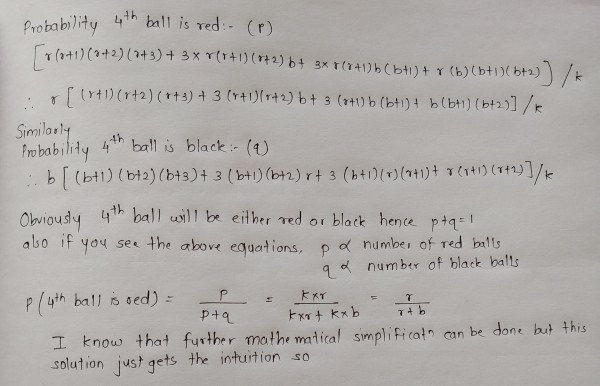 Probability 4th ball is red:- (p)
[r(r+1)(r+2)(r+3) + 3× r(r+1)(r+2) b + 3× r(r+1) b (b+1) + r (b) (b+1) (b+2)] / k
∴ r [ (r+1)(r+2)(r+3) + 3 (r+1)(r+2) b + 3 (r+1) b (b+1) + b(b+1) (b+2)] / k
Similarly
Probability 4th ball is black:- (q)
∴ b [ (b+1) (b+2) (b+3) + 3 (b+1) (b+2) r + 3 (b+1) (r) (r+1) + r (r+1) (r+2)] / k
Obviously 4th ball will be either red or black hence p+q=1
also if you see the above equations, p α number of red balls
q α number of black balls
P(4th ball is red) = p/(p+q) = k×r/(k×r + k×b) = r/(r+b)
I know that further mathematical simplificatn can be done but this
solution just gets the intuition so